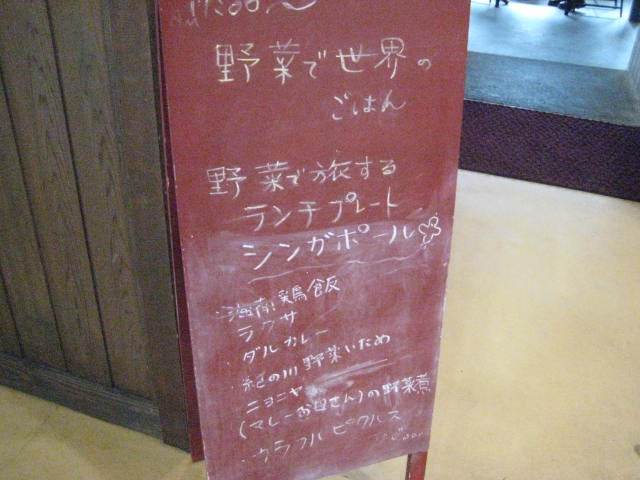 野菜で世界の
ごはん
野菜で旅する
ランチプレート
シンガポール
・海南鶏飯
ラクサ
・ダルカレー
・紀の川野菜いため
・ニョニャ
(マレーお母さん)の野菜煮
・カラフルピクルス